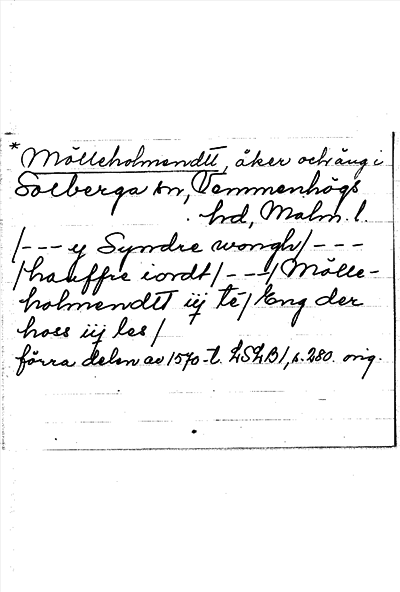 * Mölleholmendtt, åker och äng i
Solberga sn, Vemmenhögs
hd, Malm. l.
/--- y Syndre wongh/---
/hauffre iordt/---/Mölle-
holmendtt iij té/Eng der
hoss iij les/
förra delen av 1570-t. LSLB1, s. 280. orig.